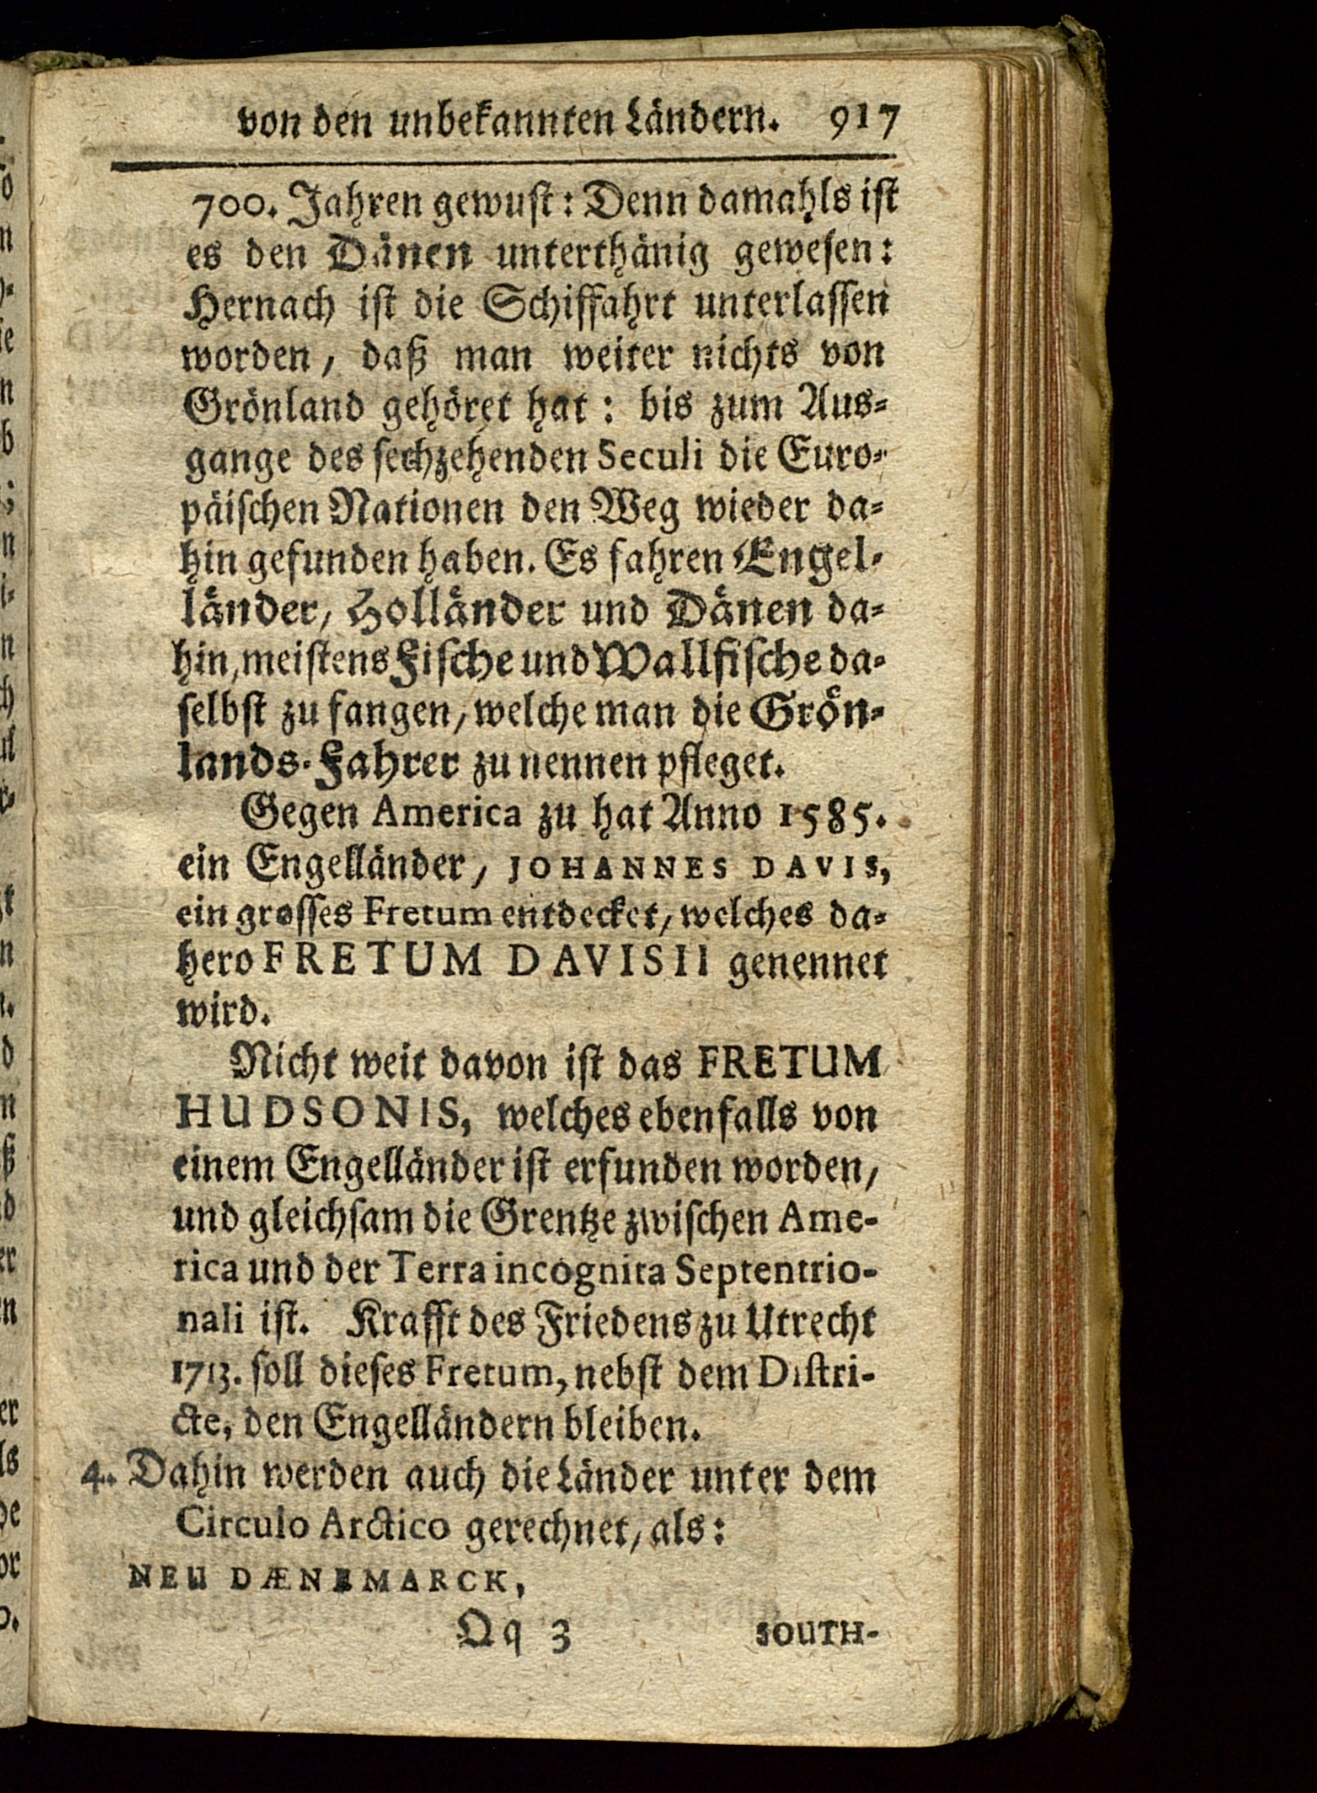 von den unbekannten Ländern. 917
700. Jahren gewust: Denn damahls ist
es den Dänen unterthänig gewesen:
Hernach ist die Schiffahrt unterlassen
worden, daß man weiter nichts von
Grönland gehöret hat: bis zum Aus-
gange des sechzehenden Seculi die Euro-
päischen Nationen den Weg wieder da-
hin gefunden haben. Es fahren Engel-
länder, Holländer und Dänen da-
hin, meistens Fische und Wallfische da-
selbst zu fangen, welche man die Grön-
lands-Fahrer zu nennen pfleget.
Gegen America zu hat Anno 1585.
ein Engelländer, JOHANNES DAVIS,
ein grosses Fretum entdecket, welches da-
hero FRETUM DAVISII genennet
wird.
Nicht weit davon ist das FRETUM
HUDSONIS, welches ebenfalls von
einem Engelländer ist erfunden worden,
und gleichsam die Grentze zwischen Ame-
rica und der Terra incognita Septentrio-
nali ist. Krafft des Friedens zu Utrecht
1713. soll dieses Fretum, nebst dem Distri-
cte, den Engelländern bleiben.
4. Dahin werden auch die Länder unter dem
Circulo Arctico gerechnet, als:
NEU DÆNEMARCK,
Qq 3 SOUTH-